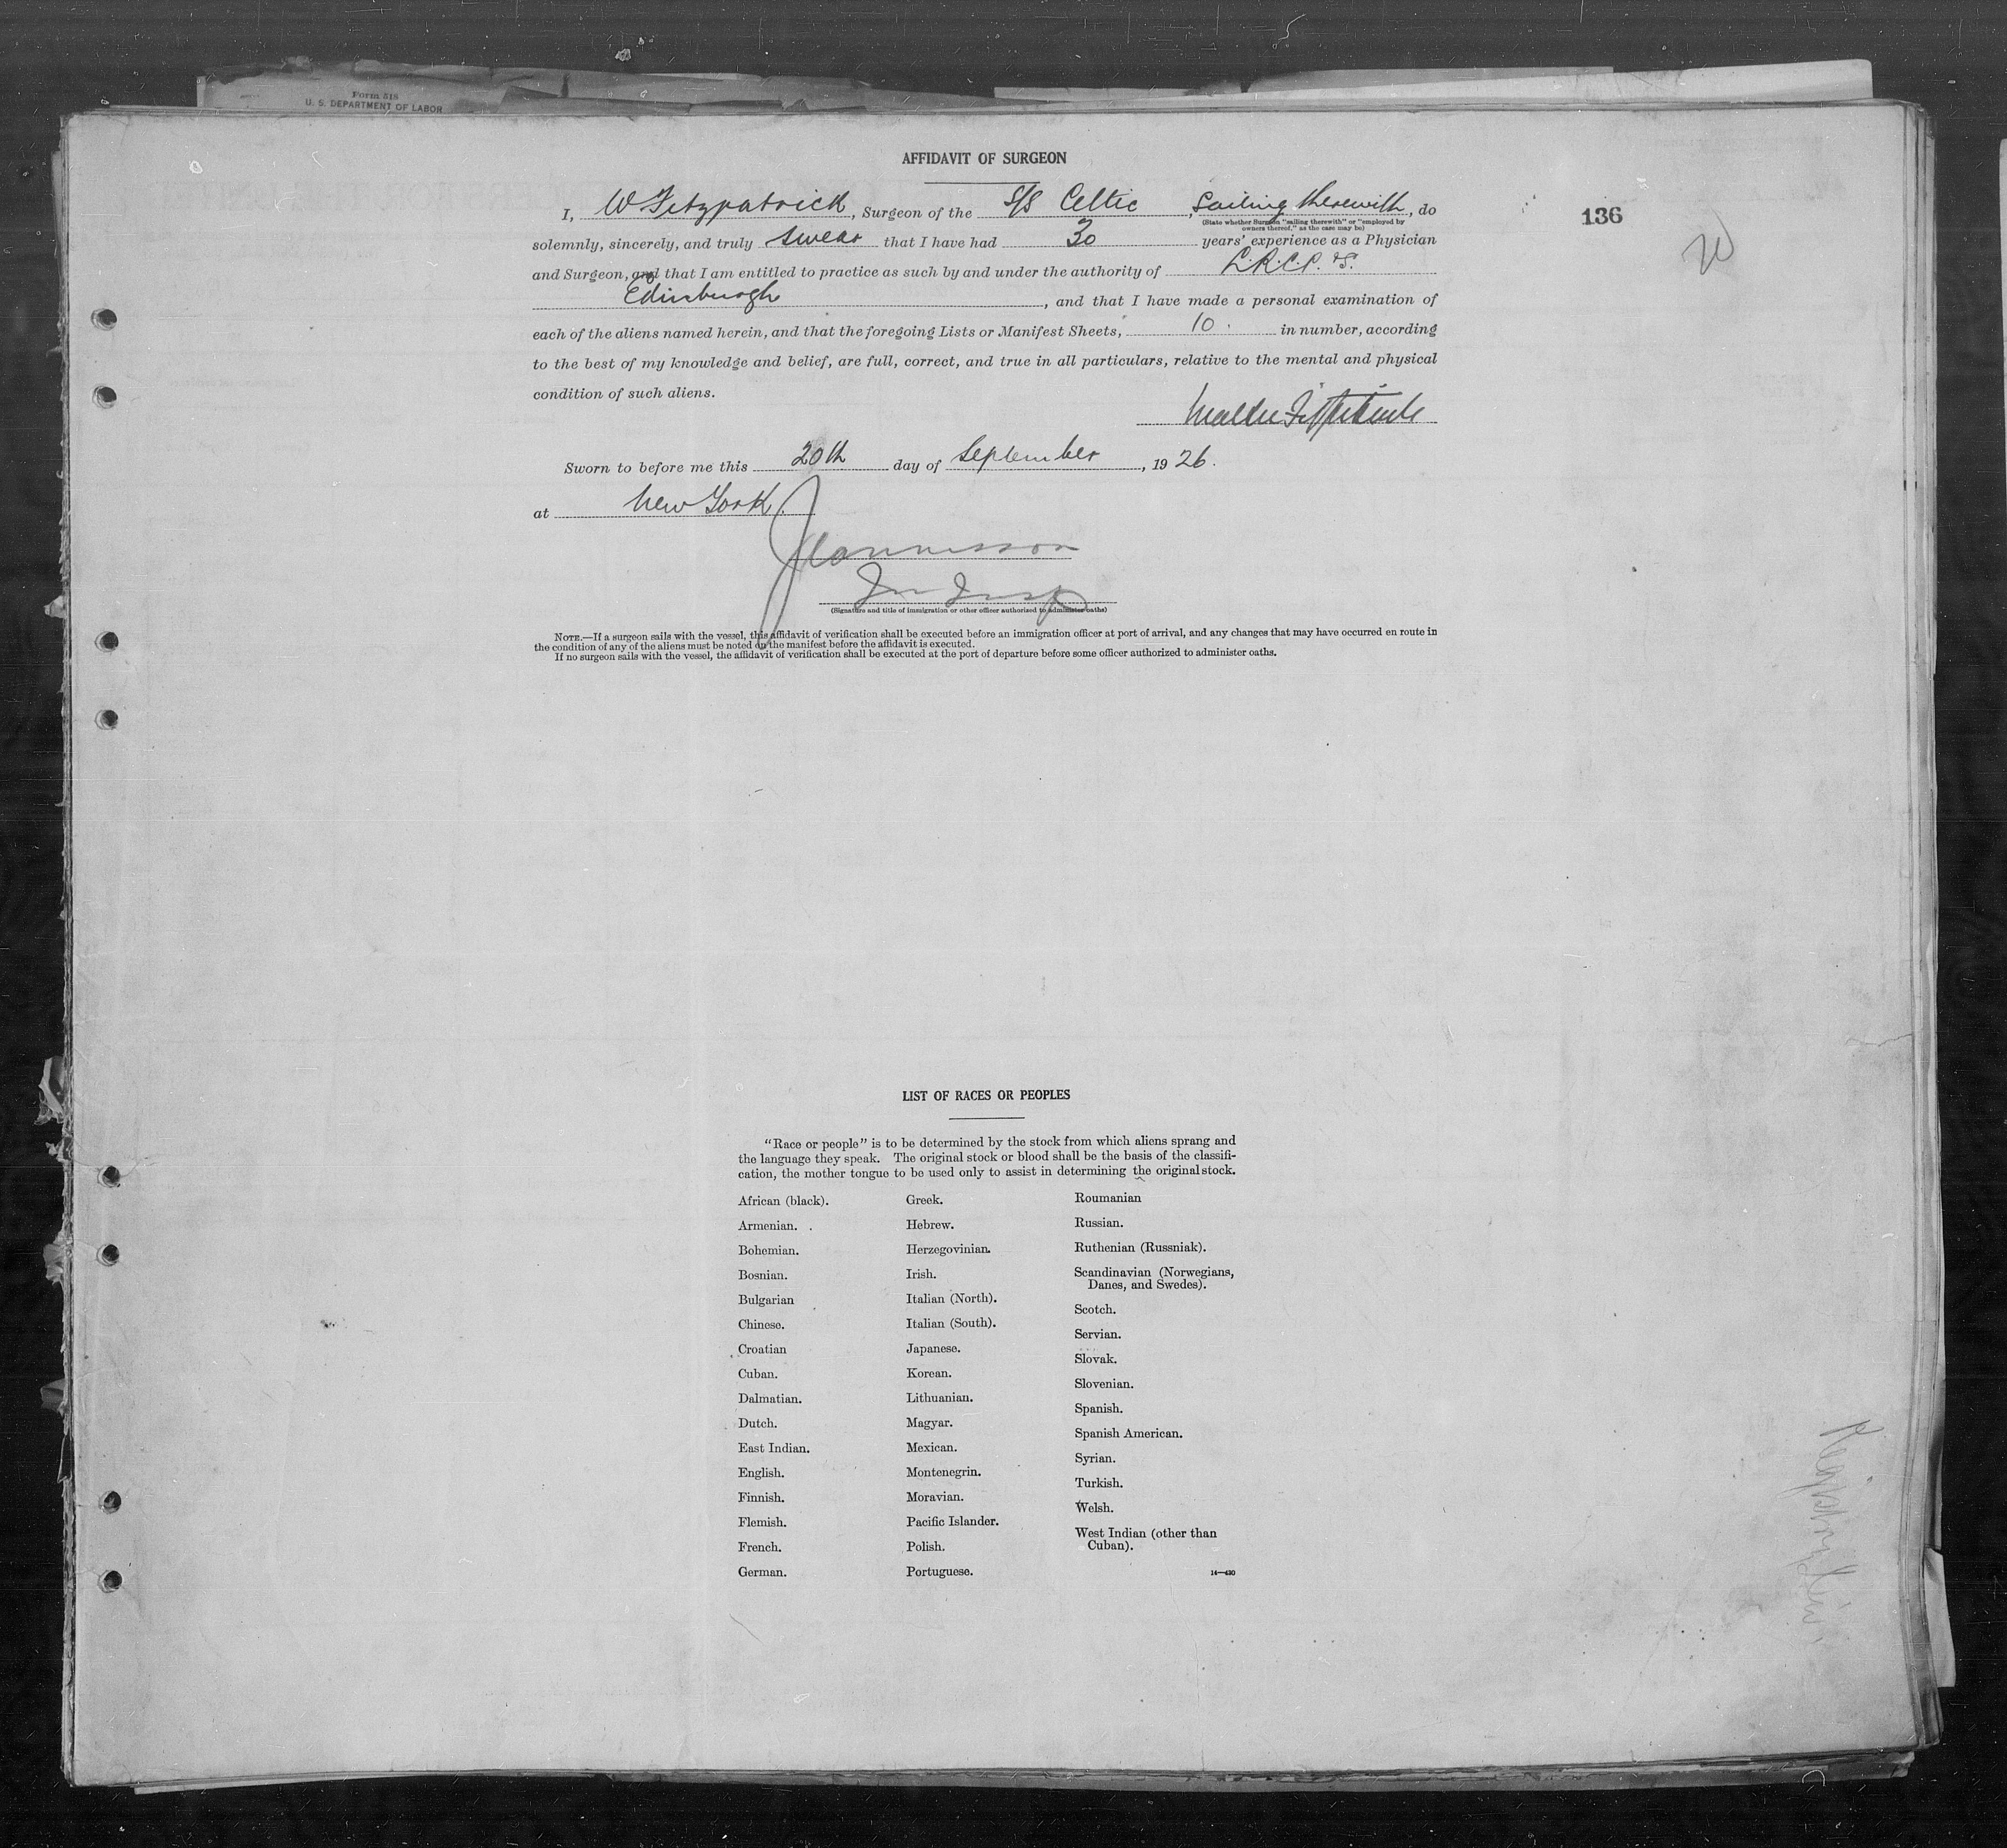 Form 518
U. S. DEPARTMENT OF LABOR
AFFIDAVIT OF SURGEON
136
W
I, W Fitzpatrick, Surgeon of the S/S Celtic, Sailing therewith, do
(State whether Surgeon "sailing therewith" or "employed by
owners thereof," as the case may be)
solemnly, sincerely, and truly swear that I have had 30 years' experience as a Physician
and Surgeon, and that I am entitled to practice as such by and under the authority of L.R.C.P. & S.
Edinburgh, and that I have made a personal examination of
each of the aliens named herein, and that the foregoing Lists or Manifest Sheets, 10 in number, according
to the best of my knowledge and belief, are full, correct, and true in all particulars, relative to the mental and physical
condition of such aliens.
Walter Fitzpatrick
Sworn to before me this 20th day of September, 1926.
at New York
Im Insp
(Signature and title of immigration or other officer authorized to administer oaths)
NOTE.—If a surgeon sails with the vessel, this affidavit of verification shall be executed before an immigration officer at port of arrival, and any changes that may have occurred en route in
the condition of any of the aliens must be noted on the manifest before the affidavit is executed.
If no surgeon sails with the vessel, the affidavit of verification shall be executed at the port of departure before some officer authorized to administer oaths.
LIST OF RACES OR PEOPLES
"Race or people" is to be determined by the stock from which aliens sprang and
the language they speak. The original stock or blood shall be the basis of the classifi-
cation, the mother tongue to be used only to assist in determining the original stock.
African (black).
Armenian.
Bohemian.
Bosnian.
Bulgarian
Chinese.
Croatian
Cuban.
Dalmatian.
Dutch.
East Indian.
English.
Finnish.
Flemish.
French.
German.
Greek.
Hebrew.
Herzegovinian.
Irish.
Italian (North).
Italian (South).
Japanese.
Korean.
Lithuanian.
Magyar.
Mexican.
Montenegrin.
Moravian.
Pacific Islander.
Polish.
Portuguese.
Roumanian
Russian.
Ruthenian (Russniak).
Scandinavian (Norwegians,
Danes, and Swedes).
Scotch.
Servian.
Slovak.
Slovenian.
Spanish.
Spanish American.
Syrian.
Turkish.
Welsh.
West Indian (other than
Cuban).
14—430